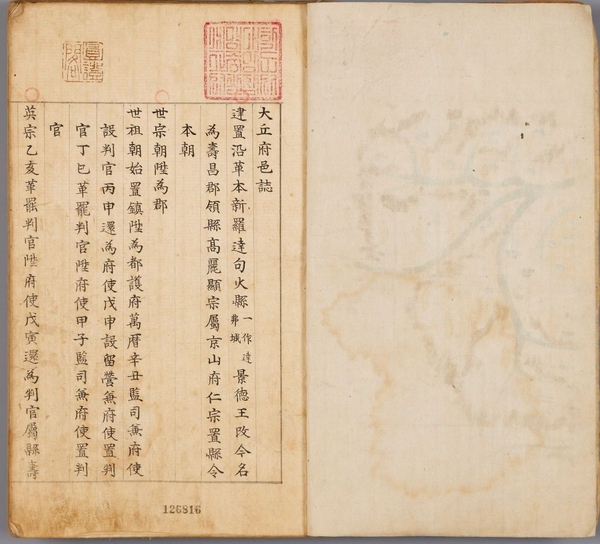 大丘府邑誌
建置沿革本新羅達句火縣一作達弗城景德王改今名
為壽昌郡領縣高麗顯宗屬京山府仁宗置縣令
本朝
世宗朝陞為郡
世祖朝始置鎮陞為都護府萬曆辛丑監司兼府使
設判官丙申還為府使戊申設留營兼府使置判
官丁巳革罷判官陞府使甲子監司兼府使置判
官
英宗乙亥革罷判官陞府使戊寅還為判官屬縣壽
126816